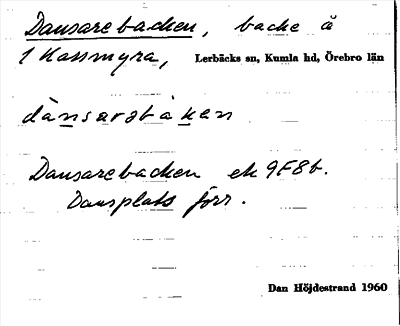 Dansarebacken, backe å
1 Kassmyra, Lerbäcks sn, Kumla hd, Örebro län
dànsarəbàkən
Dansarebacken ek 9F8b.
Dansplats förr.
Dan Höjdestrand 1960